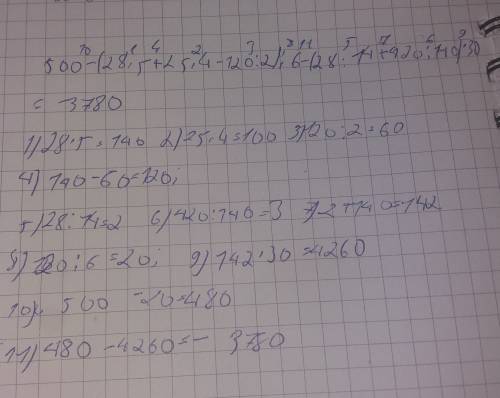 500-(28·5+25·4-120:2):6-(28:14+420:140)·30
= -3780
1) 28·5=140 2) 25·4=100 3) 120:2=60
4) 140-60=120;
5) 28:14=2 6) 420:140=3 7) 2+140=142
8) 120:6=20; 9) 142·30=4260
10) 500-20=480
11) 480-4260=-3780